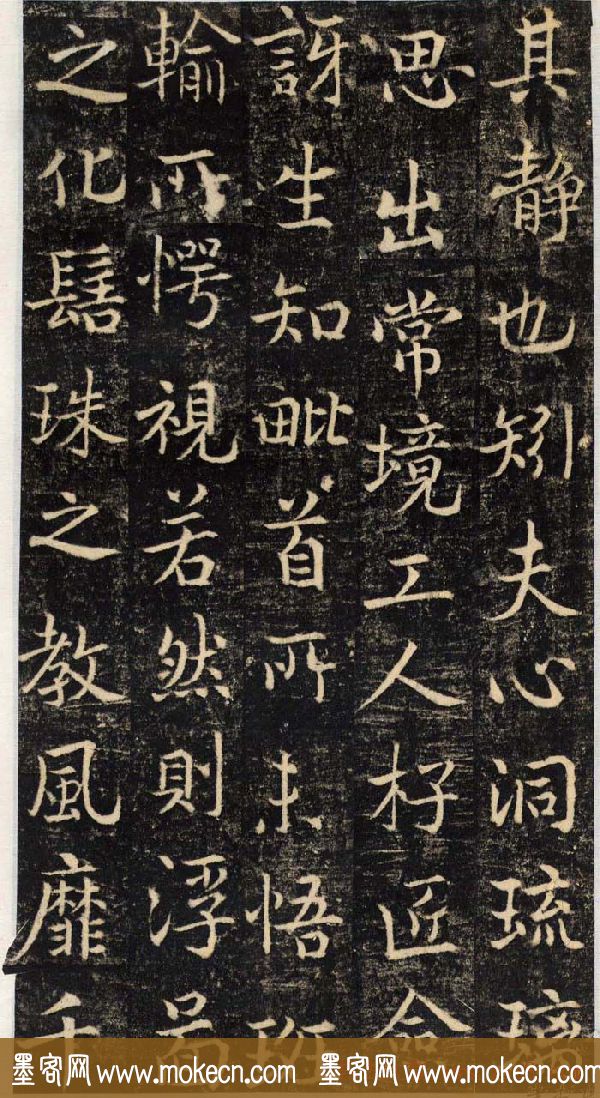 其静也矧夫心洞琉璃
思出常境工人杍匠僉
訝生知毗首所未悟班
輸所愕視若然則浮啚
之化髻珠之教風靡千
墨客网 www.mokecn.com 墨客网 www.mokecn.com